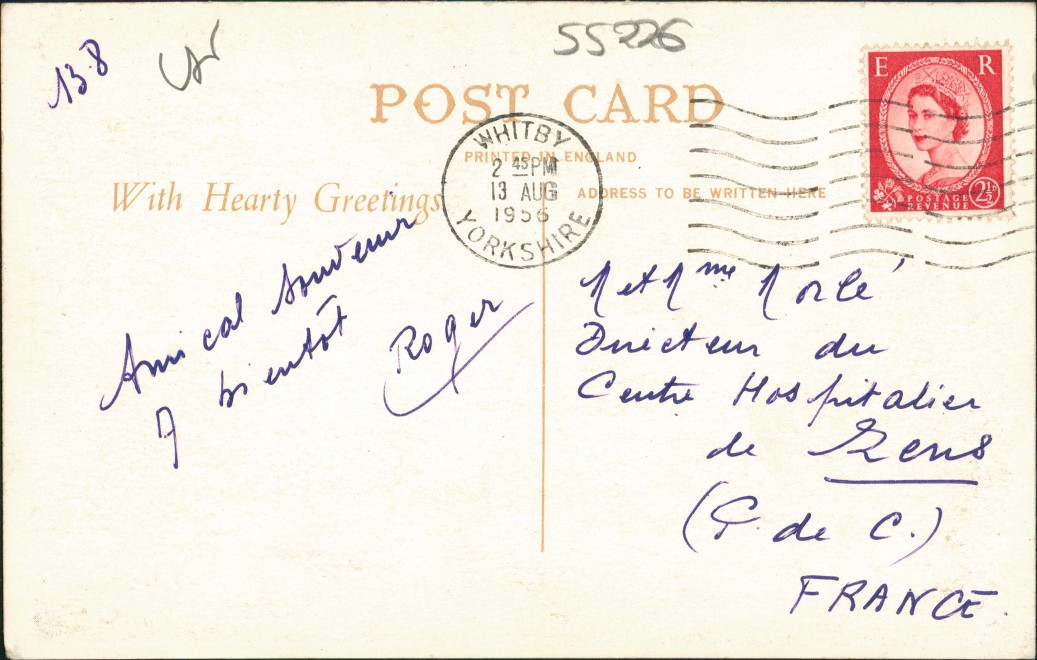 13.8
55226
POST CARD
PRINTED IN ENGLAND
With Hearty Greetings
ADDRESS TO BE WRITTEN HERE
WHITBY
2 45 PM
13 AUG
1956
YORKSHIRE
E R
POSTAGE
REVENUE
2½
Amical souvenir
A bientôt
Roger
M et Mme
Directeur du
Centre Hospitalier
de Lens
(P. de C.)
FRANCE.